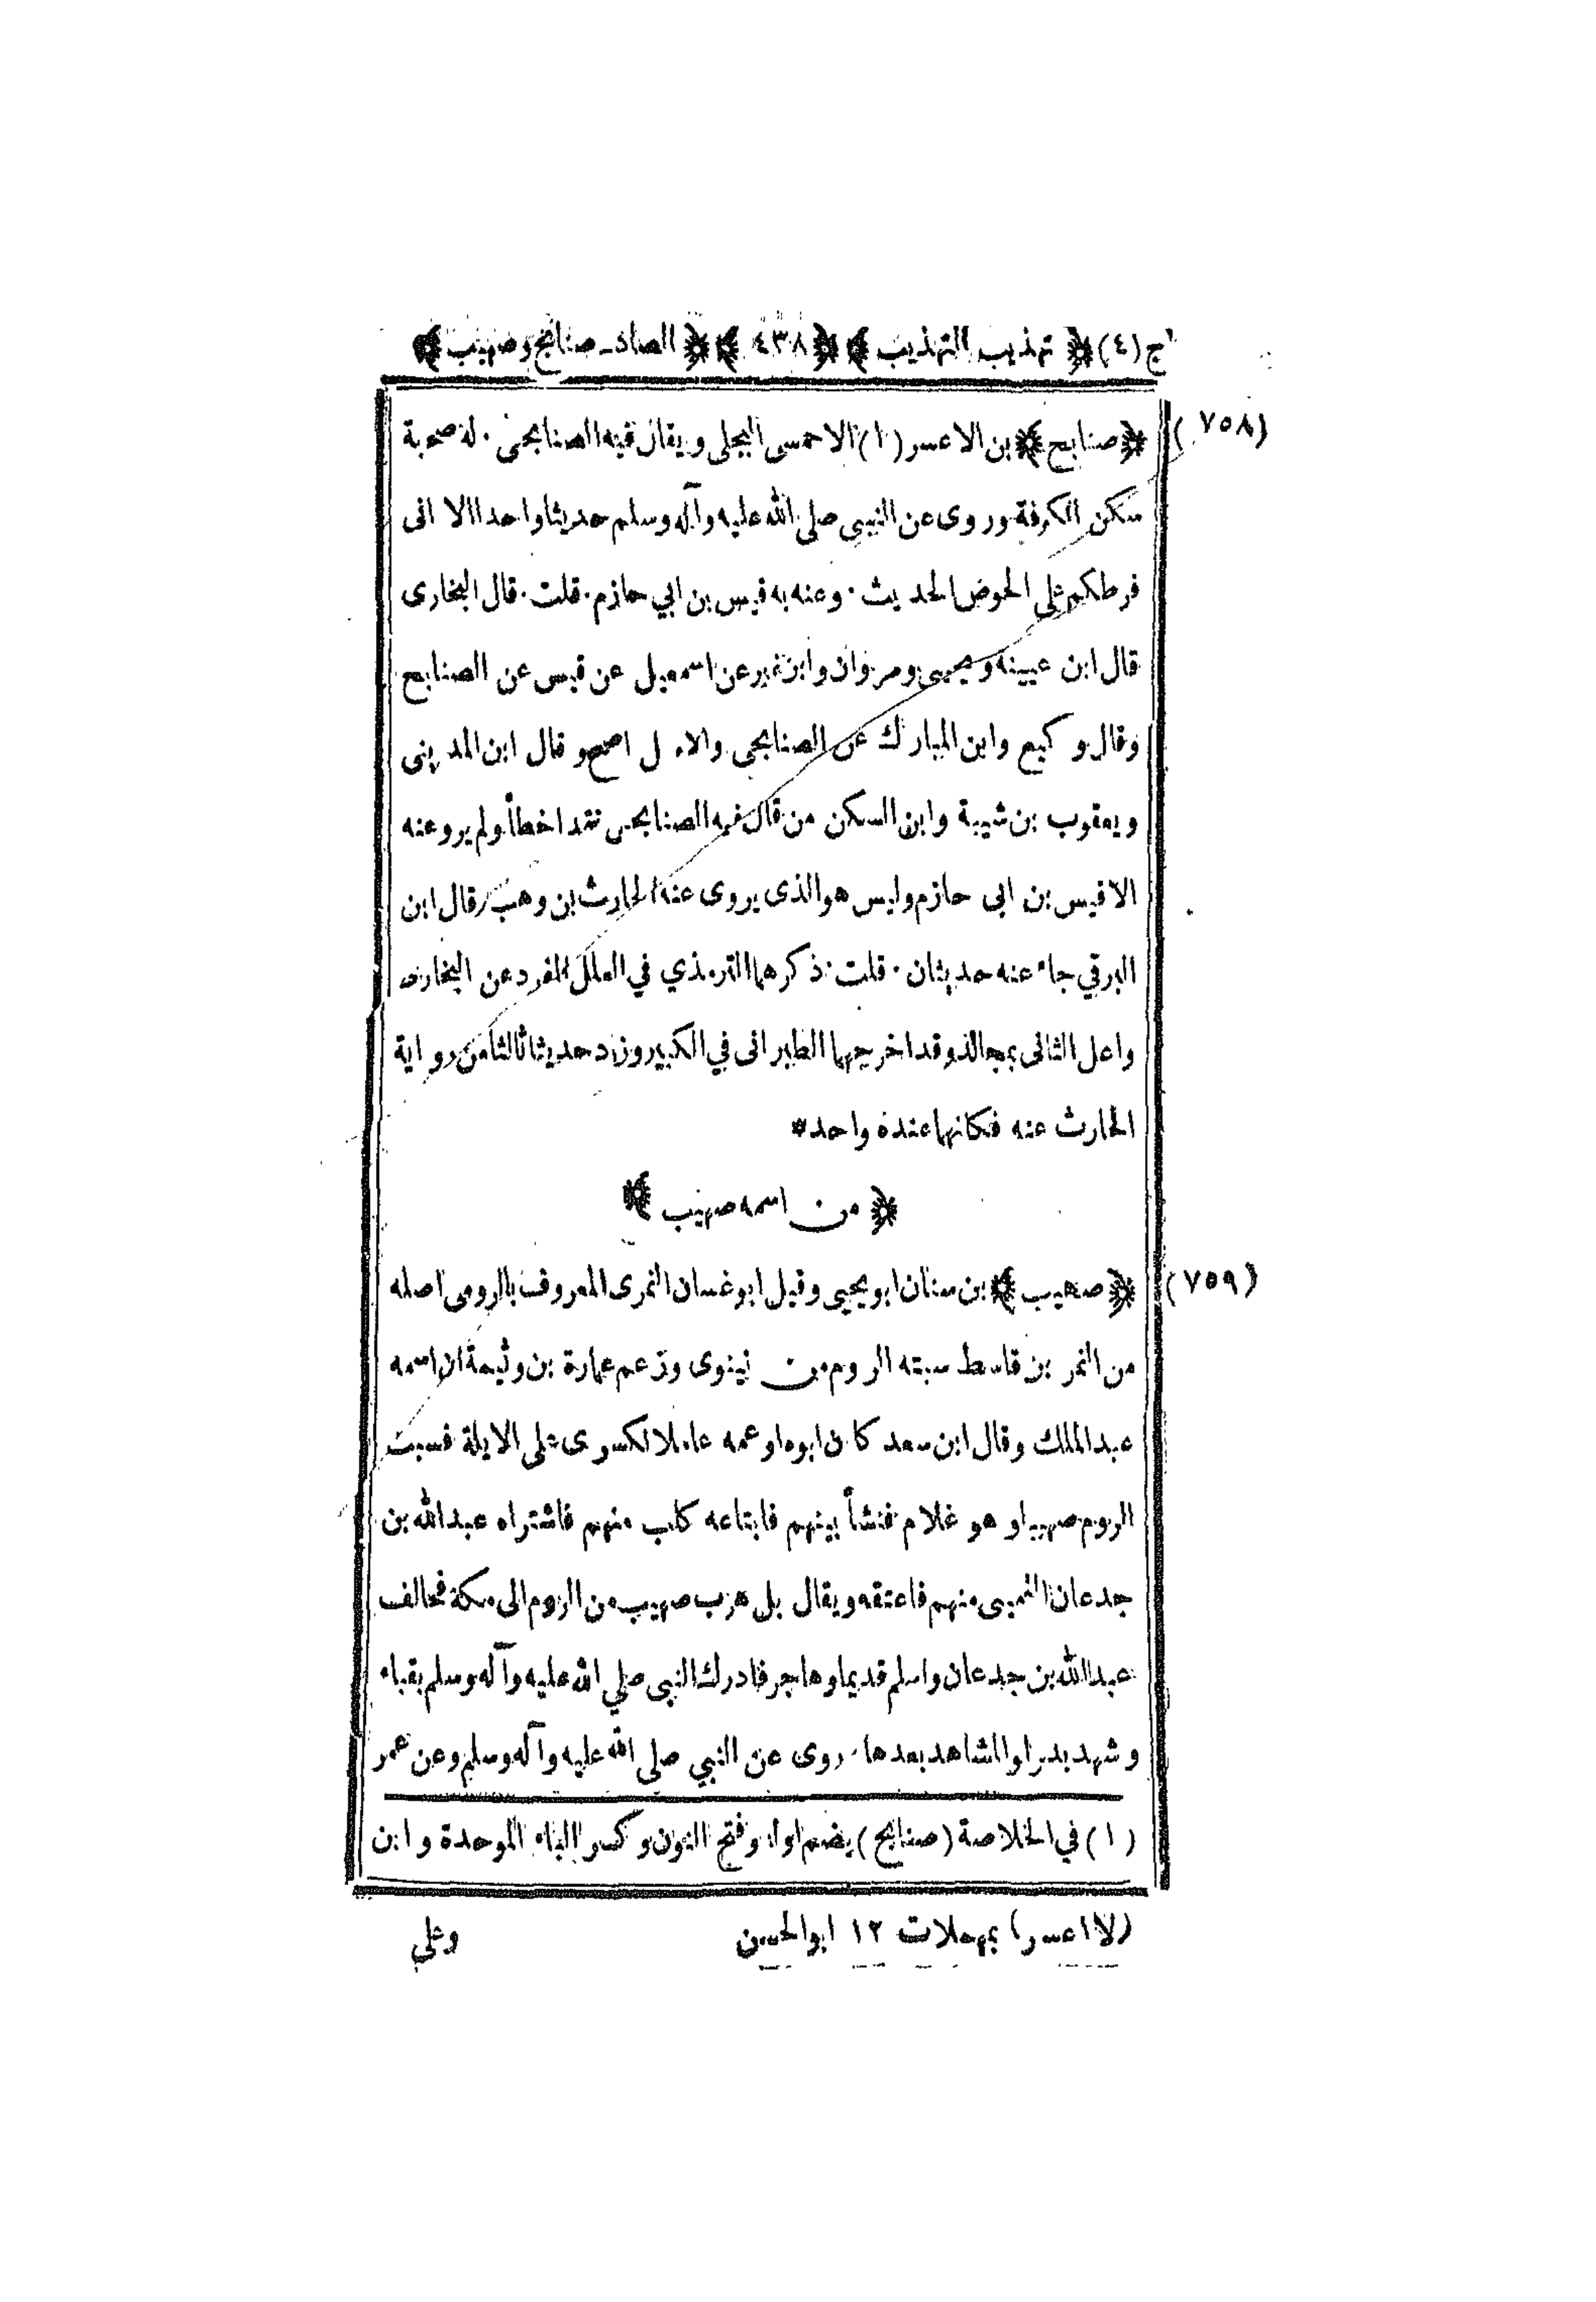 ج (٤) ﴿ تهذيب التهذيب ﴾ ﴿ ٤٣٨ ﴾ ﴿ الصاد ـ صنابح وصهيب ﴾
(٧٥٨) ﴿ صنابح ﴾ بن الاعسر (١) الاحمسى البجلى ويقال فيه الصنابحى . له صحبة
سكن الكوفة وروى عن النبى صلى الله عليه وآله وسلم حديثا واحدا الا انى
فرطكم على الحوض الحديث . وعنه به قيس بن ابي حازم . قلت . قال البخارى
قال ابن عيينه ويحيى ومروان وابن نمير عن اسمعيل عن قيس عن الصنابح
وقال وكيع وابن المبارك عن الصنابحى والاول اصح وقال ابن المدينى
ويعقوب بن شيبة وابن السكن من قال فيه الصنابحى فقد اخطأ ولم يرو عنه
الا قيس بن ابى حازم وليس هو الذى يروى عنه الحارث بن وهب وقال ابن
البرقي جاء عنه حديثان . قلت . ذكرهما الترمذي في العلل المفرد عن البخارى
واعل الثانى بمجالد وقد اخرجهما الطبرانى في الكبير وزاد حديثا ثالثا من رواية
الحارث عنه فكانهما عنده واحد *
﴿ من اسمه صهيب ﴾
(٧٥٩) ﴿ صهيب ﴾ بن سنان ابو يحيى وقيل ابو غسان النمرى المعروف بالرومى اصله
من النمر بن قاسط سبته الروم من نينوى وزعم عمارة بن وثيمة ان اسمه
عبد الملك وقال ابن سعد كان ابوه او عمه عاملا لكسرى على الايلة فسبت
الروم صهيبا وهو غلام فنشأ بينهم فابتاعه كلب منهم فاشتراه عبد الله بن
جدعان التميمى منهم فاعتقه ويقال بل هرب صهيب من الروم الى مكة فحالف
عبد الله بن جدعان واسلم قديما وهاجر فادرك النبى صلي الله عليه وآله وسلم بقباء
وشهد بدرا والمشاهد بعدها . روى عن النبي صلى الله عليه وآله وسلم وعن عمر
(١) في الخلاصة (صنابح) بضم اوله وفتح النون وكسر الباء الموحدة وابن
(لا اعسر) بمهملات ١٢ ابو الحسن
وعلي